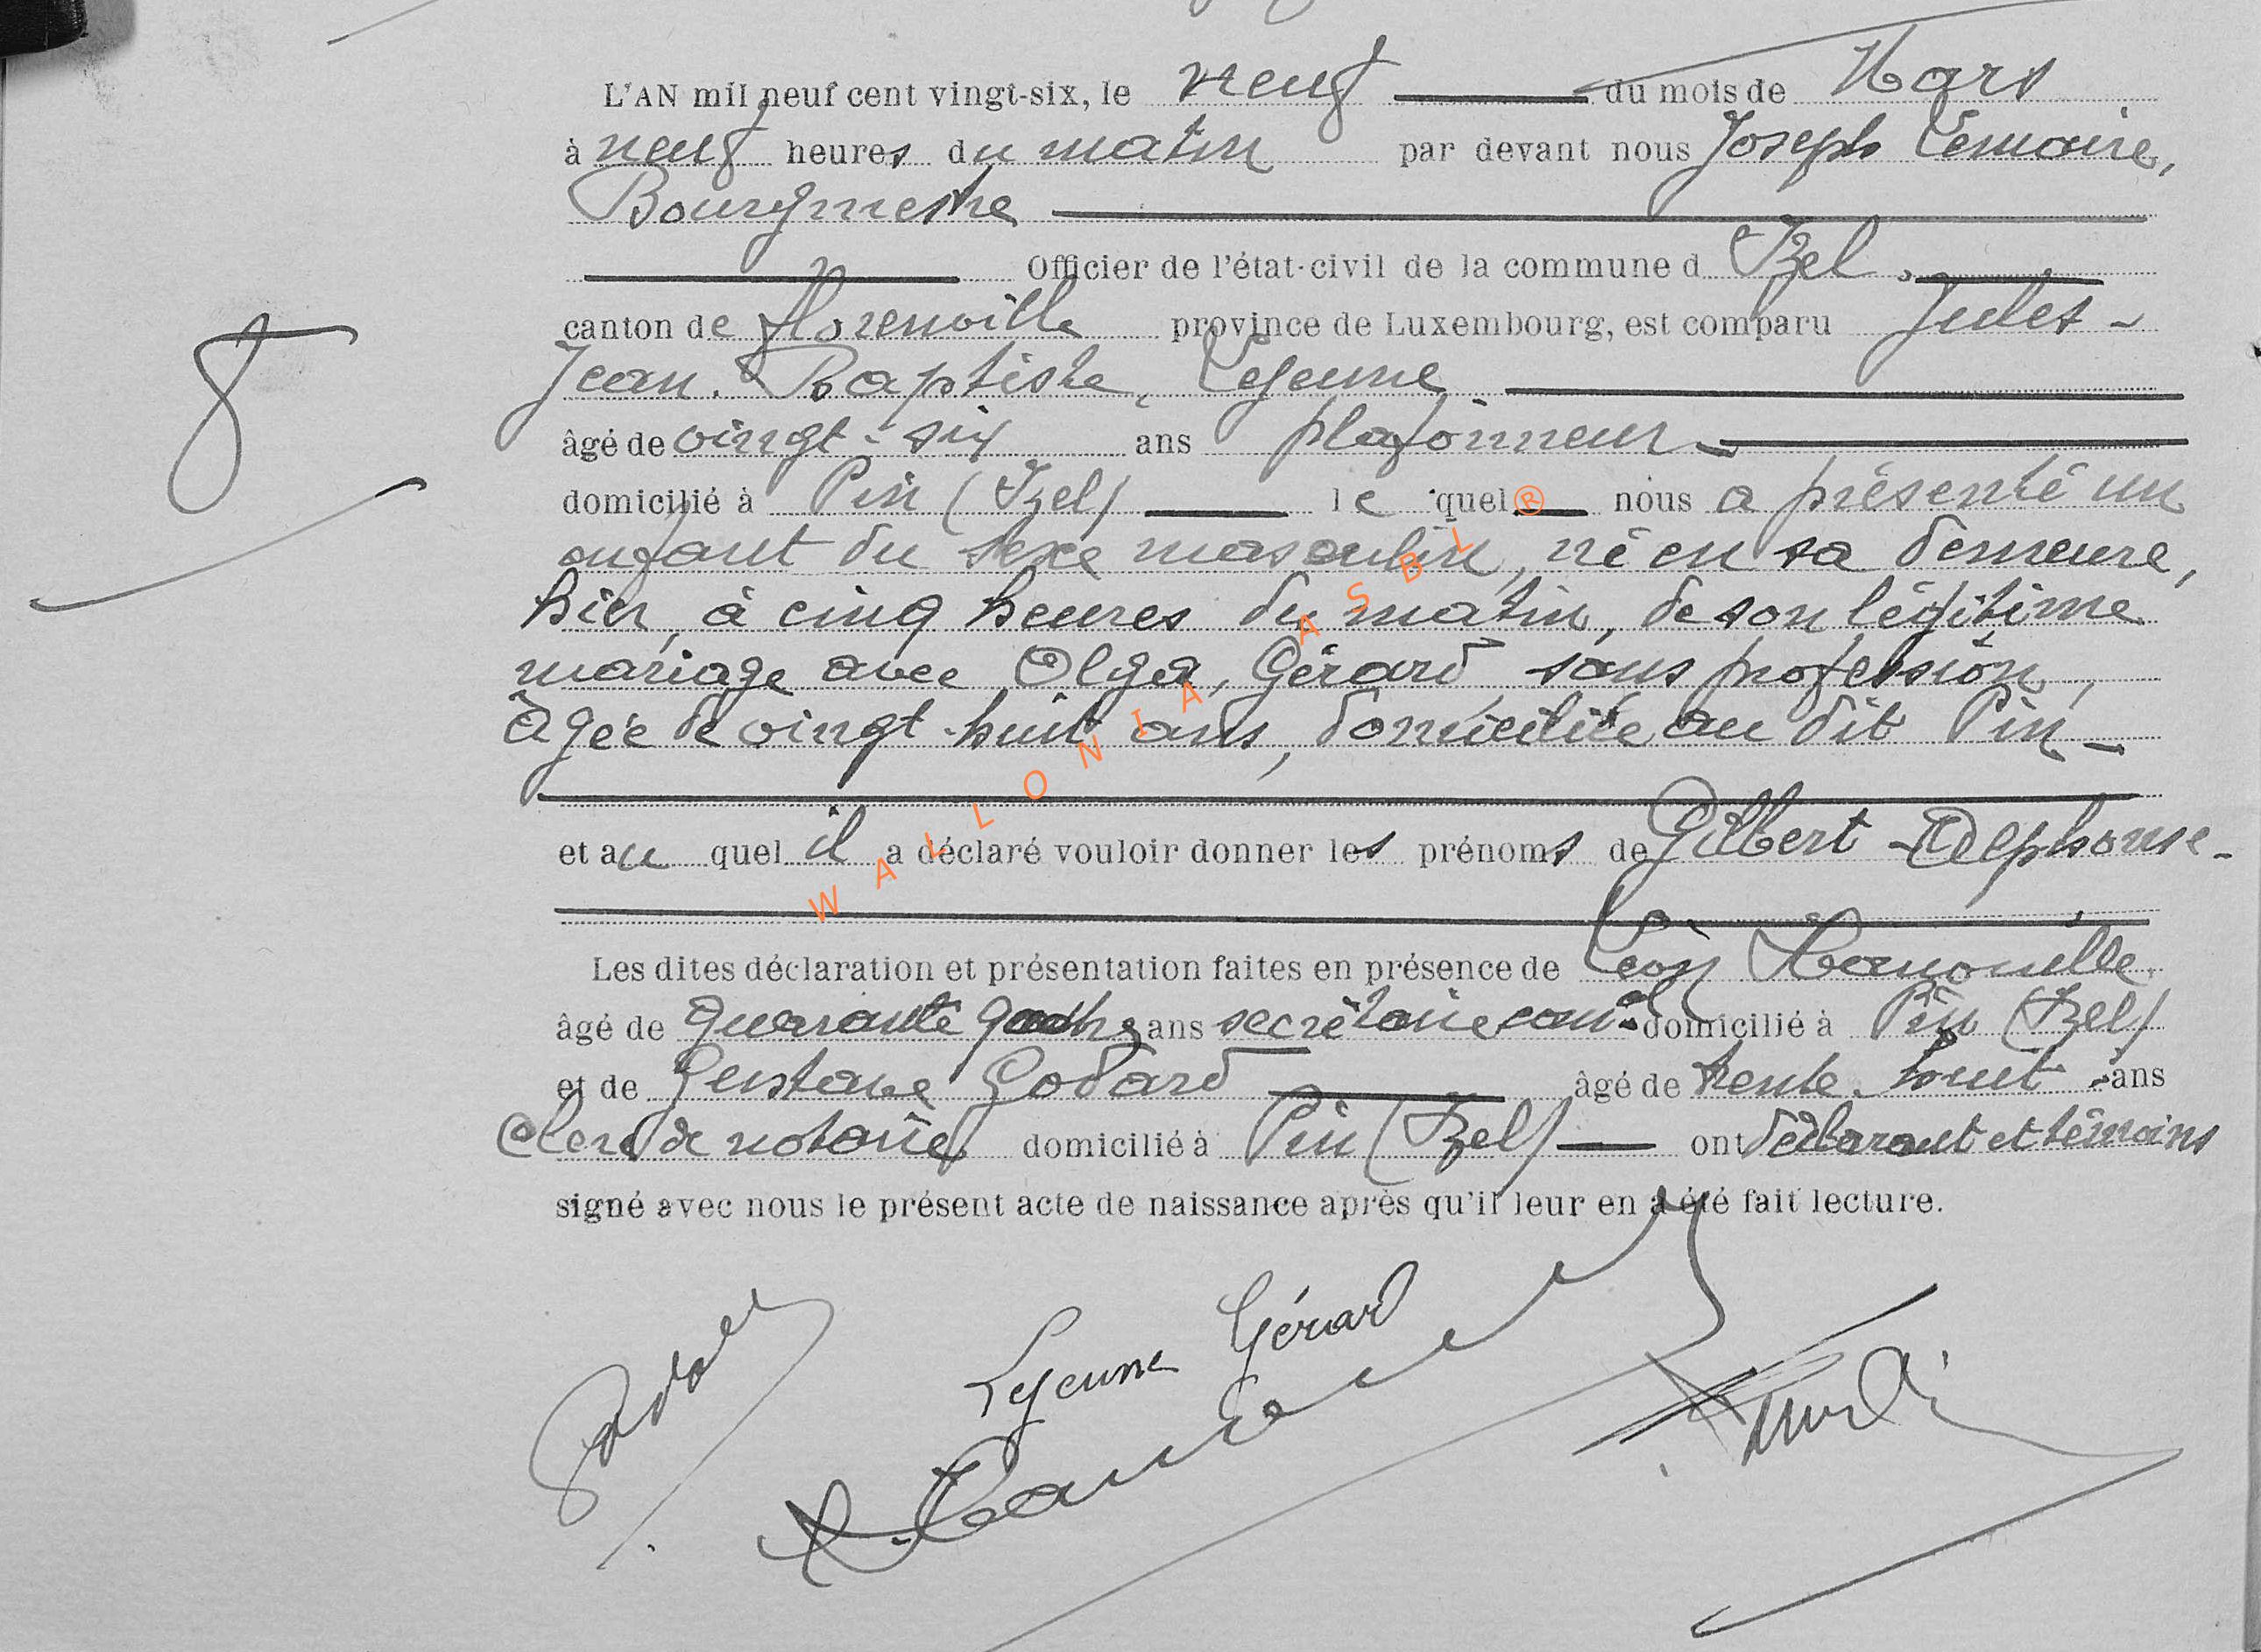 L'AN mil neuf cent vingt-six, le neuf du mois de Mars
à neuf heures du matin par devant nous Joseph Lemaire,
Bourgmestre
Officier de l'état-civil de la commune d Izel.
canton de Florenville province de Luxembourg, est comparu Jules-
8
Jean-Baptiste, Lejeune
âgé de vingt-six ans plafonneur
domicilié à Pin (Izel) le quel nous a présenté un
enfant du sexe masculin, né en sa demeure,
hier, à cinq heures du matin, de son légitime
mariage avec Olga, Gérard, sans profession,
âgée de vingt-huit ans, domiciliée au dit Pin
et au quel il a déclaré vouloir donner les prénoms de Gilbert-Alphonse-
Les dites déclaration et présentation faites en présence de Léon
âgé de quarante quatre ans secrétaire comal domicilié à Pin (Izel)
et de Gustave Godard âgé de trente-huit ans
Clerc de notaire domicilié à Pin (Izel) ont déclarant et témoins
signé avec nous le présent acte de naissance après qu'il leur en a été fait lecture.
Lejeune Gérard
WALLONIA ASBL ®